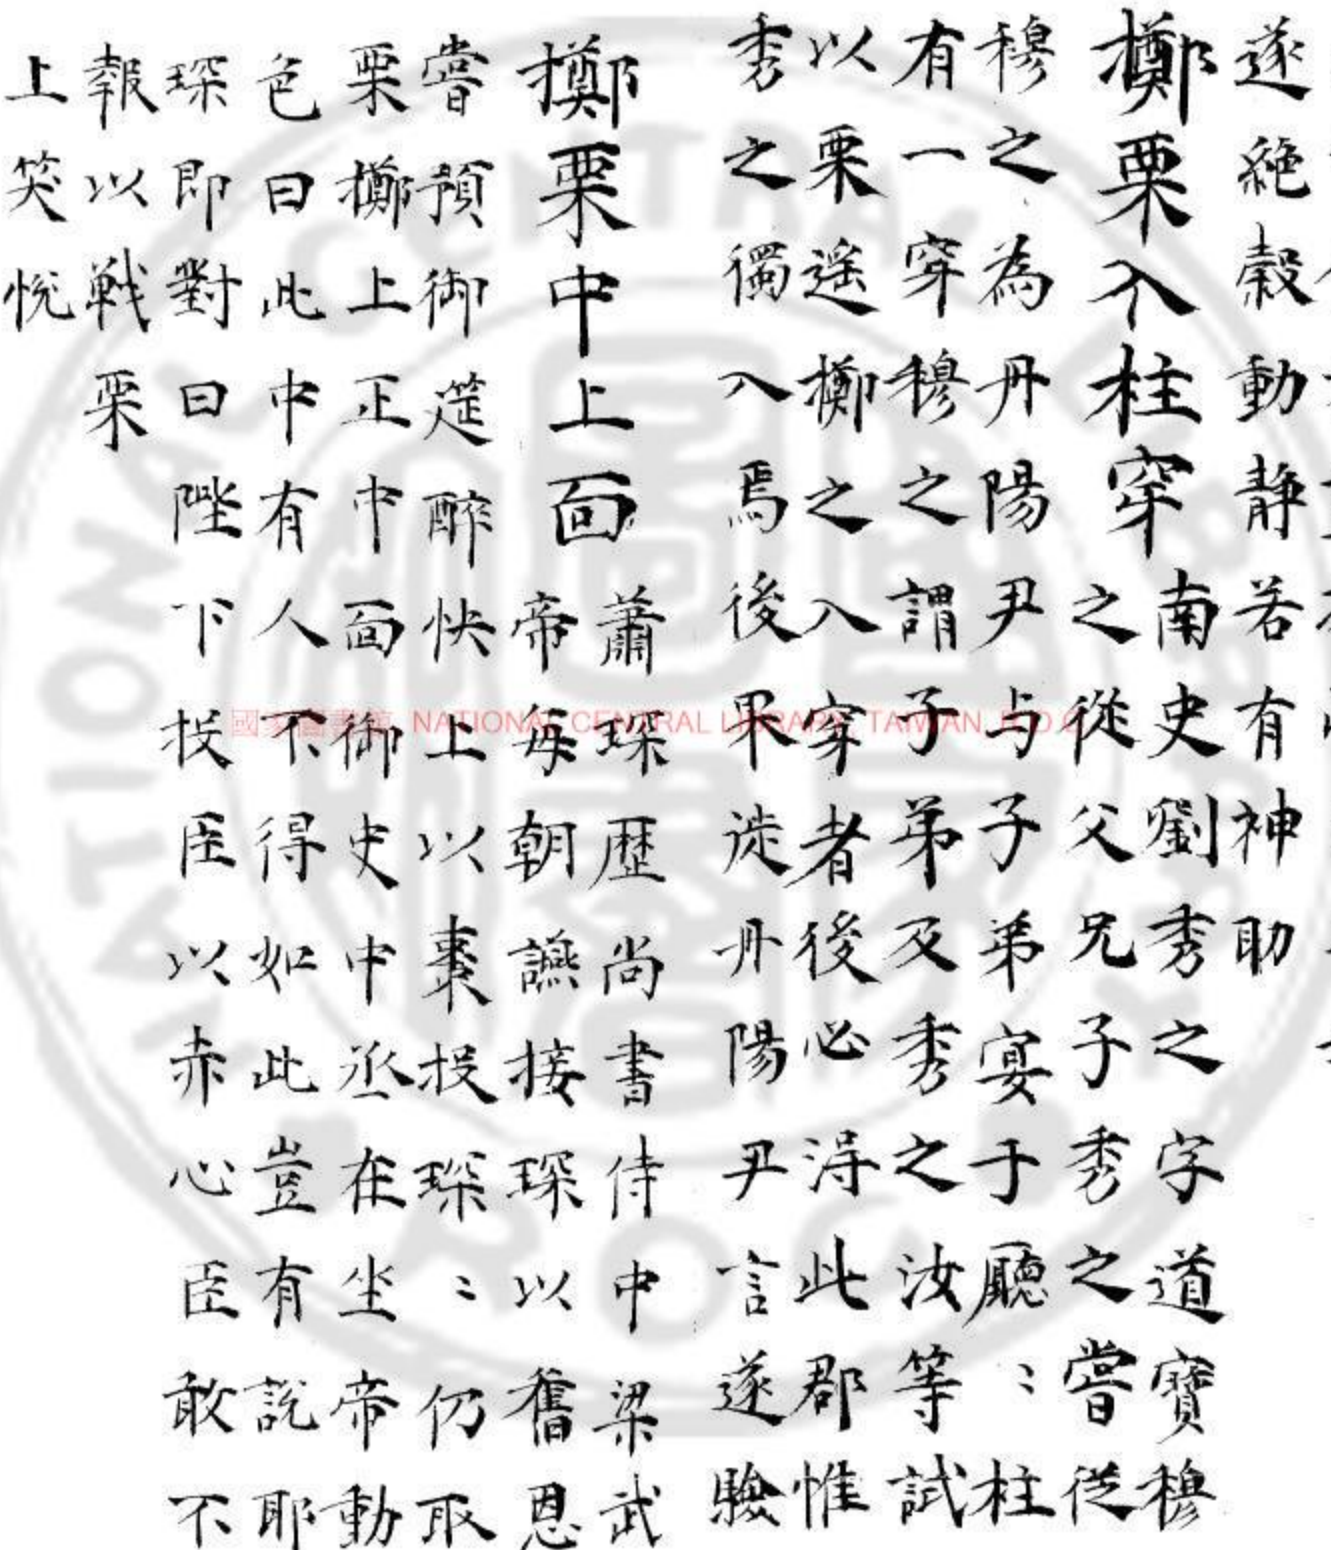 遂絕穀動静若有神助
擲栗入柱穿 南史劉秀之字道寶穆
之從父兄子秀之嘗從
穆之為丹陽尹与子弟宴于廳〻柱
有一穿穆之謂子弟及秀之汝等試
以栗遥擲之入穿者後必淂此郡惟
秀之獨入焉後果徙丹陽尹言遂驗
擲栗中上面 蕭琛歴尚書侍中梁武
帝每朝讌接琛以舊恩
嘗預御筵醉怏上以棗投琛〻仍取
栗擲上正中面御史中丞在坐帝動
色曰此中有人不得如此豈有說耶
琛即對曰陛下投臣以赤心臣敢不
報以戰栗
上笑悅
國家圖書館 NATIONAL CENTRAL LIBRARY, TAIWAN, R.O.C
NATIONAL CENTRAL LIBRARY
R.O.C